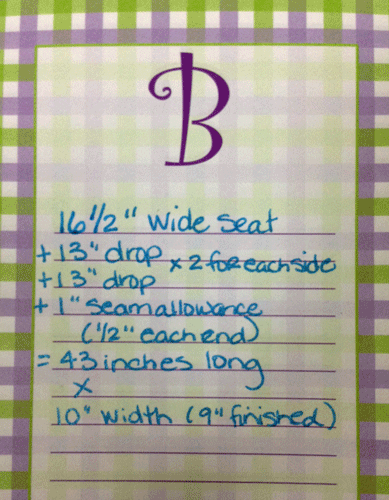 B
16 1/2" wide seat
+ 13" drop x 2 for each side
+ 13" drop
+ 1" seam allowance
(1/2" each end)
= 43 inches long
x
10" width (9" finished)